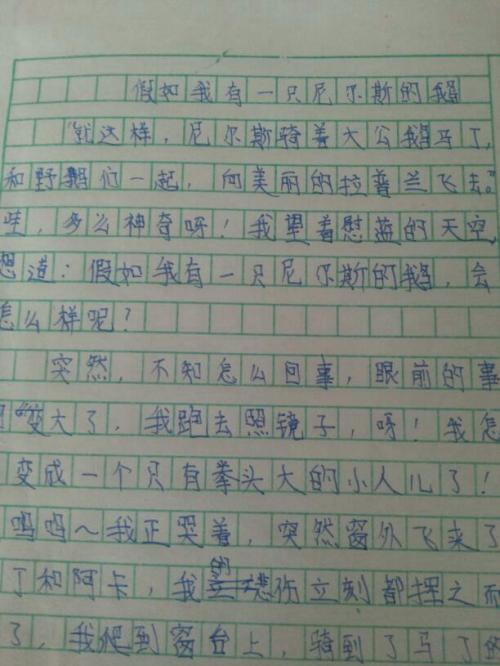 假如我有一只尼尔斯的鹅
"就这样，尼尔斯骑着大公鹅马丁，
和野鹅们一起，向美丽的拉普兰飞去。"
哇，多么神奇呀！我望着慰蓝的天空
想道：假如我有一只尼尔斯的鹅，会
怎么样呢？
突然，不知怎么回事，眼前的事
"变大了，我跑去照镜子，呀！我怎
变成一个只有拳头大的小人儿了！
呜呜～我正哭着，突然窗外飞来了
丁和阿卡，我的悲伤立刻都挥之而
了，我爬到窗台上，骑到了马丁的